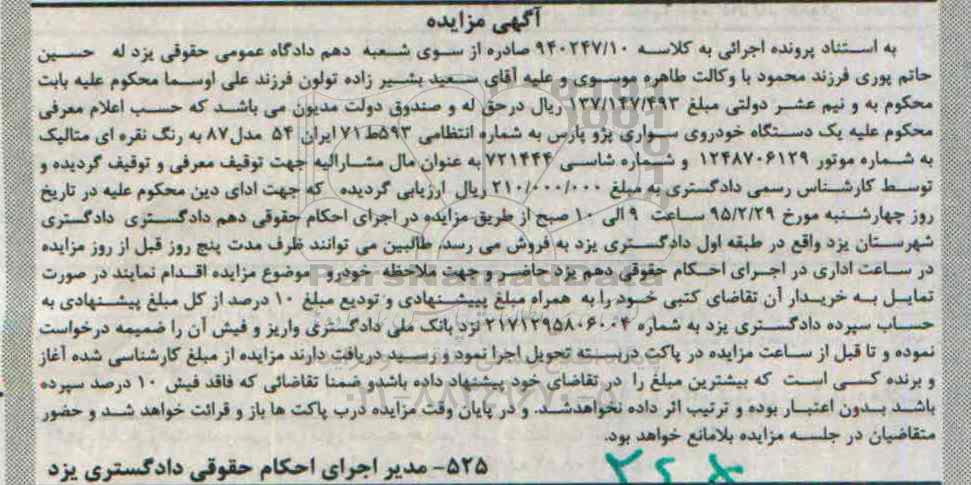 آگهی مزایده
به استناد پرونده اجرائی به کلاسه ۹۴۰۲۴۷/۱۰ صادره از سوی شعبه دهم دادگاه عمومی حقوقی یزد له حسین
حاتم پوری فرزند محمود با وکالت طاهره موسوی و علیه آقای سعید بشیر زاده تولون فرزند علی اوسما محکوم علیه بابت
محکوم به و نیم عشر دولتی مبلغ ۱۳۷/۱۴۷/۴۹۳ ریال درحق له و صندوق دولت مدیون می باشد که حسب اعلام معرفی
محکوم علیه یک دستگاه خودروی سواری پژو پارس به شماره انتظامی ۵۹۳ط۷۱ ایران ۵۴ مدل۸۷ به رنگ نقره ای متالیک
به شماره موتور ۱۲۴۸۷۰۶۱۲۹ و شماره شاسی ۷۲۱۴۴۴ به عنوان مال مشارالیه جهت توقیف معرفی و توقیف گردیده و
توسط کارشناس رسمی دادگستری به مبلغ ۲۱۰/۰۰۰/۰۰۰ ریال ارزیابی گردیده که جهت ادای دین محکوم علیه در تاریخ
روز چهارشنبه مورخ ۹۵/۲/۲۹ ساعت ۹ الی ۱۰ صبح از طریق مزایده در اجرای احکام حقوقی دهم دادگستری دادگستری
شهرستان یزد واقع در طبقه اول دادگستری یزد به فروش می رسد. طالبین می توانند ظرف مدت پنج روز قبل از روز مزایده
در ساعت اداری در اجرای احکام حقوقی دهم یزد حاضر و جهت ملاحظه خودرو موضوع مزایده اقدام نمایند در صورت
تمایل به خریدار آن تقاضای کتبی خود را به همراه مبلغ پیشنهادی و تودیع مبلغ ۱۰ درصد از کل مبلغ پیشنهادی به
حساب سپرده دادگستری یزد به شماره ۲۱۷۱۲۹۵۸۰۶۰۰۴ نزد بانک ملی دادگستری واریز و فیش آن را ضمیمه درخواست
نموده و تا قبل از ساعت مزایده در پاکت دربسته تحویل اجرا نمود و رسید دریافت دارند مزایده از مبلغ کارشناسی شده آغاز
و برنده کسی است که بیشترین مبلغ را در تقاضای خود پیشنهاد داده باشدو ضمنا تقاضائی که فاقد فیش ۱۰ درصد سپرده
باشد بدون اعتبار بوده و ترتیب اثر داده نخواهدشد. و در پایان وقت مزایده درب پاکت ها باز و قرائت خواهد شد و حضور
متقاضیان در جلسه مزایده بلامانع خواهد بود.
۵۲۵- مدیر اجرای احکام حقوقی دادگستری یزد
ParsNamadData
۰۲۱-۸۸۳۴۹۶۷۰-۵